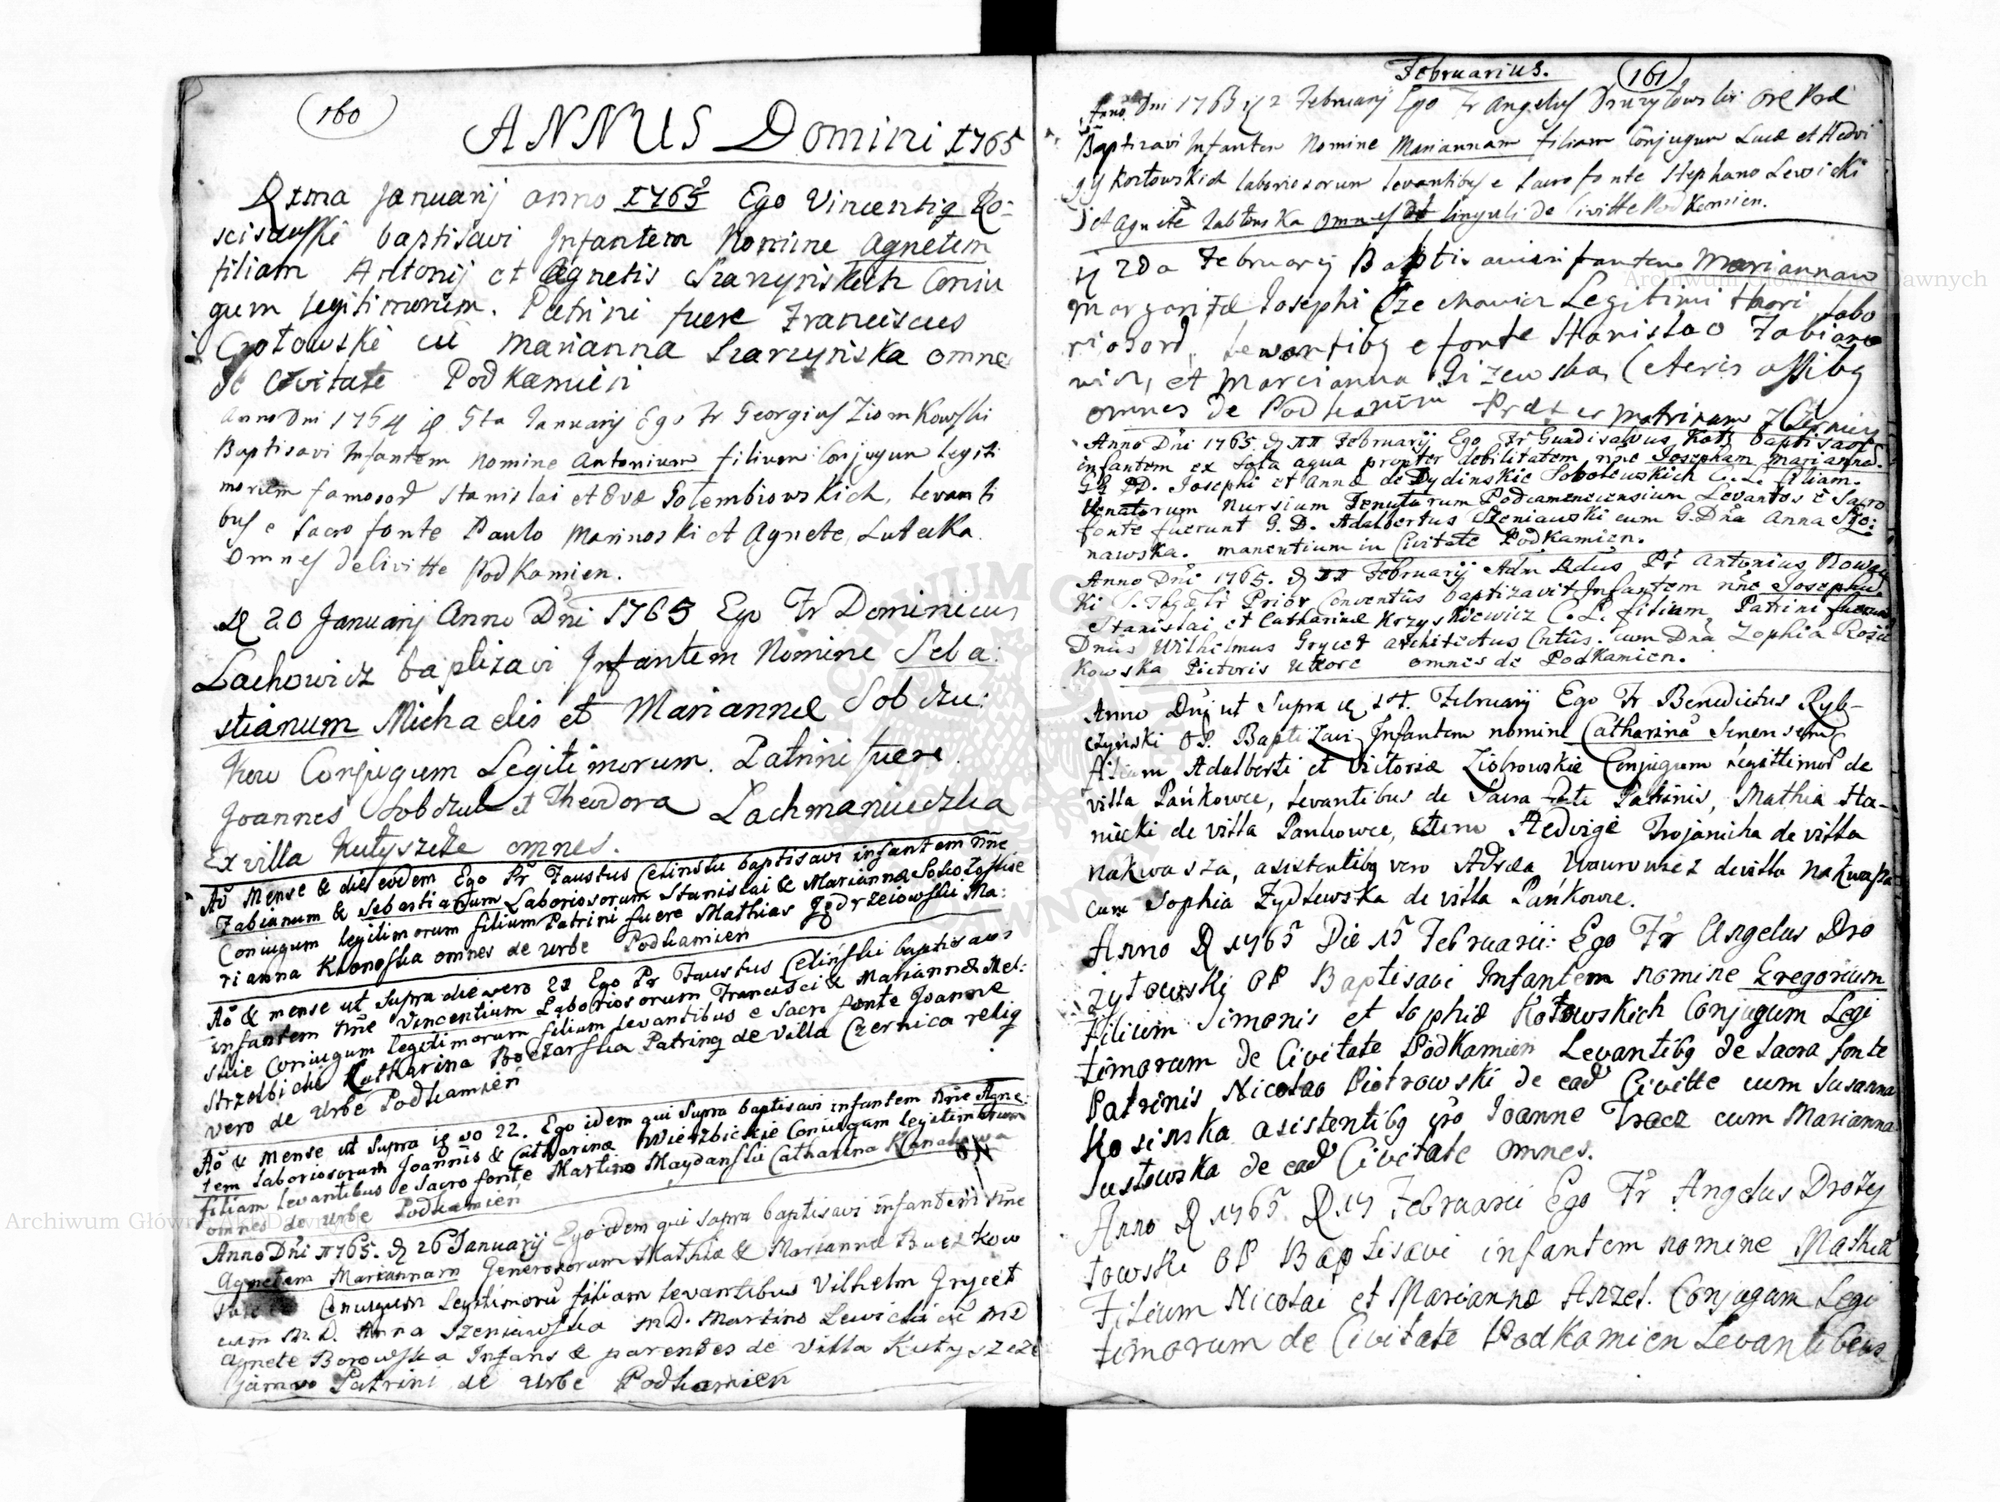 160
ANNUS Domini 1765
Ima Januarij anno 1765 Ego Vincentiq Ro-
sciszewski baptisavi Infantem Nomine Agnetem
filiam Antonij et Agnetis Skarzynskich Coniu
gum legitimorum. Patrini fuere Franciscus
Czotowski cū Marianna Skarzynska omnes
de Civitate Podkamien
Anno Dni 1764 5ta Januarij Ego Fr Georgius Ziomkowski
Baptisavi Infantem Nomine Antonium filium Conjugum legiti
morum famosorū Stanislai et Evæ Golembiowskich, levanti
bus e Sacro fonte Paulo Marinoski et Agnete Lutecka
Omnes de Civitte Podkamien.
20 Januarij Anno Dni 1765 Ego Fr Dominicus
Lachowicz baptizavi Infantem Nomine Seba:
stianum Michaelis et Mariannæ Sobczu:
kow Conjugum Legitimorum. Patrini fuere
Joannes Sobczuk et Theodora Lachmaniuczka
Ex villa Hutyszcze omnes.
Aō Mense & die eodem Ego Fr Faustus Celinski baptisavi infantem Nne
Fabianum & Sebastianum Laboriosorum Stanislai & Mariannæ
Coniugum legitimorum filium Patrini fuere Mathias Jędrzeiowski Ma:
rianna Kronoska omnes de Urbe Podkamien
Aō & mense ut Supra die vero 21 Ego Fr Faustus Celiński baptisavi
infantem Nne Vincentium Laboriosorum Francisci & Mariannæ Mel:
skie Coniugum legitimorum filium levantibus e Sacro fonte Joanne
Strzelbicki Katharina Boczarska Patrinq de Villa Czernica reliq
vero de Urbe Podkamien
Aō & Mense ut Supra vo 22. Ego idem qui Supra baptisavi infantem Nne Agne:
tem Laboriosorum Joannis & Catharinæ Wierzbickie Coniugum legitimorum
filiam levantibus e Sacro fonte Martino Maydanski Catharina
omnes de Urbe Podkamien
Anno Dni 1765. 26 January Ego idem qui Supra baptisavi infantem Nne
Agnetam Mariannam Generosorum Mathiæ & Mariannæ
Coniugum Legitimorū filiam levantibus Vilhelm Gryciet
cum M. D. Anna Szeniawska M.D. Martino Lewicki cū MD
Agnete Borowska Infans & parentes de Villa Hutyszcze
Patrini de Urbe Podkamien
Februarius.
161
Anno Dni 1765 2 Februarij Ego Fr Angelus Druzytowski Ord Præd
Baptizavi Infantem Nomine Mariannam filiam Conjugum Lucæ et Hedvi
gis Kortowskich laboriosorum levantibus e Sacro fonte Stephano Lewicki
et Agnete Jablonska omnes et singuli de Civitte Podkamien.
2da Februarij Baptisavi infantem Mariannam
Margaritæ Josephi Czechowicz Legitimi thori labo
riosorū, Levantibq e fonte Stanislao Fabiano
wicz, et Marcianna Gizewska, Cæteris assitibq
omnes de Podkamien Præter matrinam
Anno Dni 1765. 11 Februarij Ego Fr Gundisalvus baptisavi
infantem ex sola aqua propter debilitatem nne Josepham Mariannā.
GG DD. Josephi et Annæ de Dydinskie Sobolewskich C. L. filiam.
Venatorum Nursium Tenutarum Podcameneciensium Levantes e Sacro
fonte fuerunt G. D. Adalbertus Szeniawski cum G. Dña Anna
nawska. manentium in Civitate Podkamien.
Anno Dni 1765. 11 Februarij Adm Rdus Pr Antonius Nowac
ki S. Th. Prior Conventūs baptizavit Infantem nne Josephū
Stanislai et Catharinæ Krzyszkiewicz C. L. filium, Patrini fuerunt
Dnus Wilhelmus Gryciet architectus Cntūs. cum Dna Zophia Rosu
kowska Pictoris Uxore omnes de Podkamien.
Anno Dni ut Supra 14. Februarij Ego Fr Benedictus Ryb-
czyński OP. Baptizavi Infantem nomine Catharinā Senensem
filiam Adalberti et Victoriæ Ziobrowskie Conjugum legittimorū de
villa Pańkowce, Levantibus de Sacro fonte Patrinis, Mathia Sta-
nicki de villa Pankowce, Hedvige Trojanicha de villa
Nakwasza, asistentibq vero Wawrowicz de villa Nakwasza
cum Sophia Zydlewska de villa Pańkowce.
Anno D 1765 Die 15 Februarii: Ego Fr Angelus Dro
zytowski OP Baptisavi Infantem nomine Gregorium
Filium Simonis et Sophiæ Kotowskich Conjugum Legi
timorum de Civitate Podkamien Levantibq de Sacra fonte
Patrinis Nicolao Piotrowski de eadē Civitte cum Susanna
Kosinska asistentibq Joanne Tracz cum Marianna
Sustowska de eadē Civitate omnes.
Anno D 1765 17 Februarii Ego Fr Angelus Droży
towski OP Baptisavi infantem nomine Mathiā
Filium Nicolai et Mariannæ Anzel. Conjugum Legi
timorum de Civitate Podkamien Levantibus
Archiwum Główne Akt Dawnych